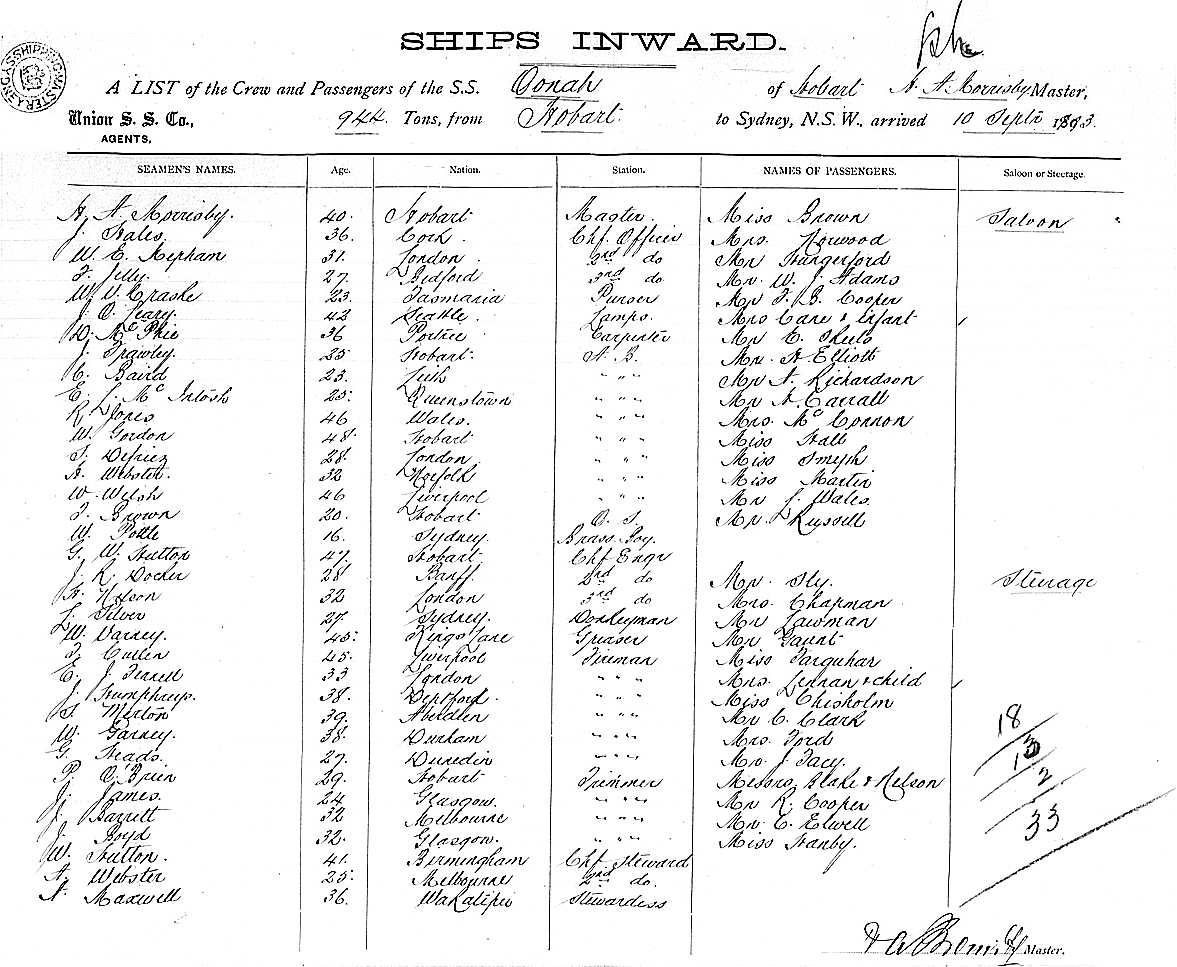 SHIPS INWARD.
SHIPPING MASTER SYDNEY
A LIST of the Crew and Passengers of the S.S. Oonah of Hobart A. A. Morrisby Master,
Union S. S. Co., 944 Tons, from Hobart. to Sydney, N.S.W., arrived 10 Septr 1893.
AGENTS,
SEAMEN'S NAMES. Age. Nation. Station. NAMES OF PASSENGERS. Saloon or Steerage.
A. A. Morrisby. 40. Hobart Master. Miss Brown Saloon "
J. Hales. 36. Cork. Chf. Officer Mrs. Norwood
W. E. Kepham 31. London. 2nd do Mr Hungerford
F. Jilly. 27. Bedford 3rd do Mr. W. J. Adams
W. V. 23. Tasmania Purser Mr F. B. Cooper
J. O. Leary. 42 Seattle. Lamps. Mrs Care & Infant
D. McPhie 36 Portree Carpenter Mr E.
J. Frawley. 25 Hobart. A. B. Mr. A Elliott
C. Baird 23. Leith " " " Mr A. Richardson
E. L. McIntosh 25: Queenstown " " " Mr A. Carrall
R. Jones 46 Wales. " " " Mrs. McConnon
W. Gordon 48. Hobart " " " Miss Hall
S. Defriez 28. London " " " Miss Smyth
A. Webster. 32 Norfolk " " " Miss Martin
W. Welsh 46 Liverpool " " " Mr L. Wales.
F. Brown 20. Hobart O. S. Mr. Russell
W. Pottle 16. Sydney. Brass Boy.
G. W. Hutton 47. Hobart. Chf Engr
J. R. Docker 28 Banff. 2nd do Mr. Sly. Steerage
A. Nelson 32 London 3rd do Mrs. Chapman
L. Silver 27. Sydney. Donkeyman Mr Lawman
W. Varney. 45: Kings Lane Greaser Mr Gaunt
F. Cullen 45. Liverpool Fireman Miss Farquhar
E. J. Ferrell 33 London " " " Mrs. Lennan & child
J. Humphrys. 38. Deptford. " " " Miss Chisholm
S. Merton 39. Aberdeen " " " Mr C. Clark
W. Garney. 38. Durham " " " Mrs. Ford
G. Heads. 27. Dunedin " " " Mr J. Facy.
P. O'Brien 29. Hobart Trimmer Messrs Blake & Nelson
J. James. 24 Glasgow. " " " Mr R. Cooper
J. Barrett 32 Melbourne " " " Mr. C. Elwell
J. Boyd 32. Glasgow. " " " Miss Hanby.
W. Hutton. 41. Birmingham Chf Steward
A. Webster 25. Melbourne 2nd do.
A. Maxwell 36. Wakatipu Stewardess
18
13
2
33
Master.